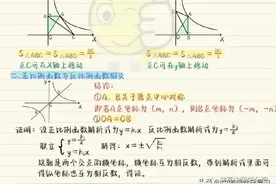 S△ABC = S△ABC = |k|/2
点C可在X轴上移动
S△ABC = S△ABC = |k|/2
点C可在y轴上移动
二.正比例函数与反比例函数相交
结论:
①A、B关于原点中心对称
即若A点坐标为(m, n),则B点坐标为(-m, -n)
②OA = OB
证明:设正比例函数解析式为y=k₁x 反比例函数解析式为y=k₂/x
联立 { y=k₂/x y=k₁x 解得:x=±√k₂/k₁
这就是两个交点的横坐标,横坐标互为相反数,带到解析式里面可
得纵坐标也互为相反数,得证.